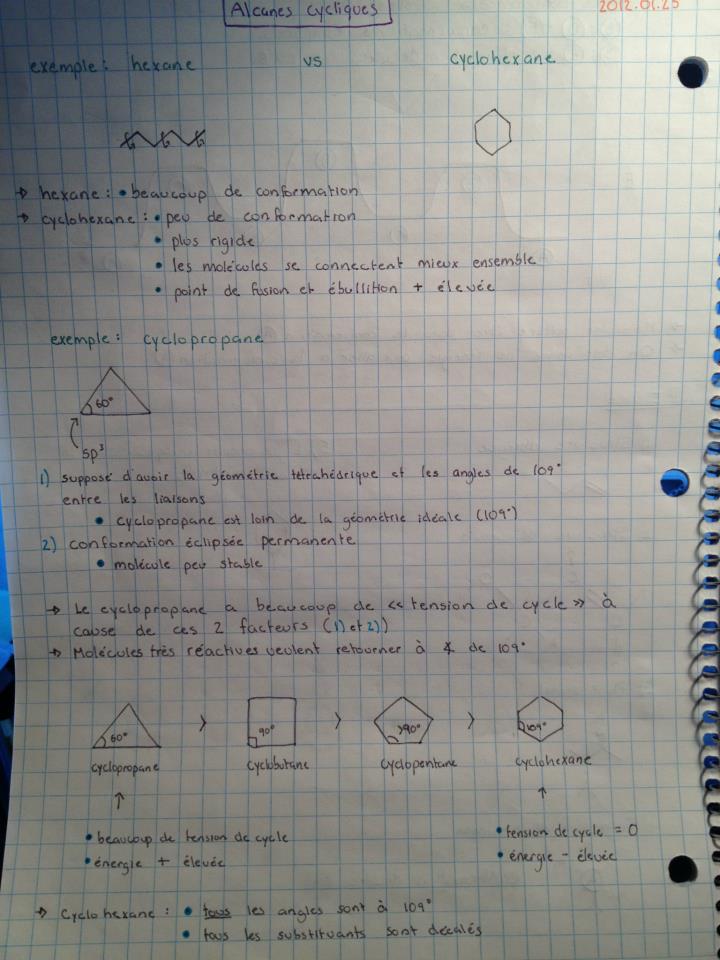 Alcanes cycliques
2012.01.25
exemple: hexane vs cyclohexane
→ hexane: • beaucoup de conformation
→ cyclohexane: • peu de conformation
• plus rigide
• les molécules se connectent mieux ensemble
• point de fusion et ébullition + élevée
exemple: cyclopropane
60°
sp³
1) supposé d'avoir la géométrie tétrahédrique et les angles de 109°
entre les liaisons
• cyclopropane est loin de la géométrie idéale (109°)
2) conformation éclipsée permanente
• molécule peu stable
→ Le cyclopropane a beaucoup de << tension de cycle >> à
cause de ces 2 facteurs (1) et 2))
→ Molécules très réactives veulent retourner à ∢ de 109°
60° > 90° > >90° > 109°
cyclopropane cyclobutane cyclopentane cyclohexane
• beaucoup de tension de cycle • tension de cycle = 0
• énergie + élevée • énergie - élevée
→ Cyclohexane: • tous les angles sont à 109°
• tous les substituants sont décalés